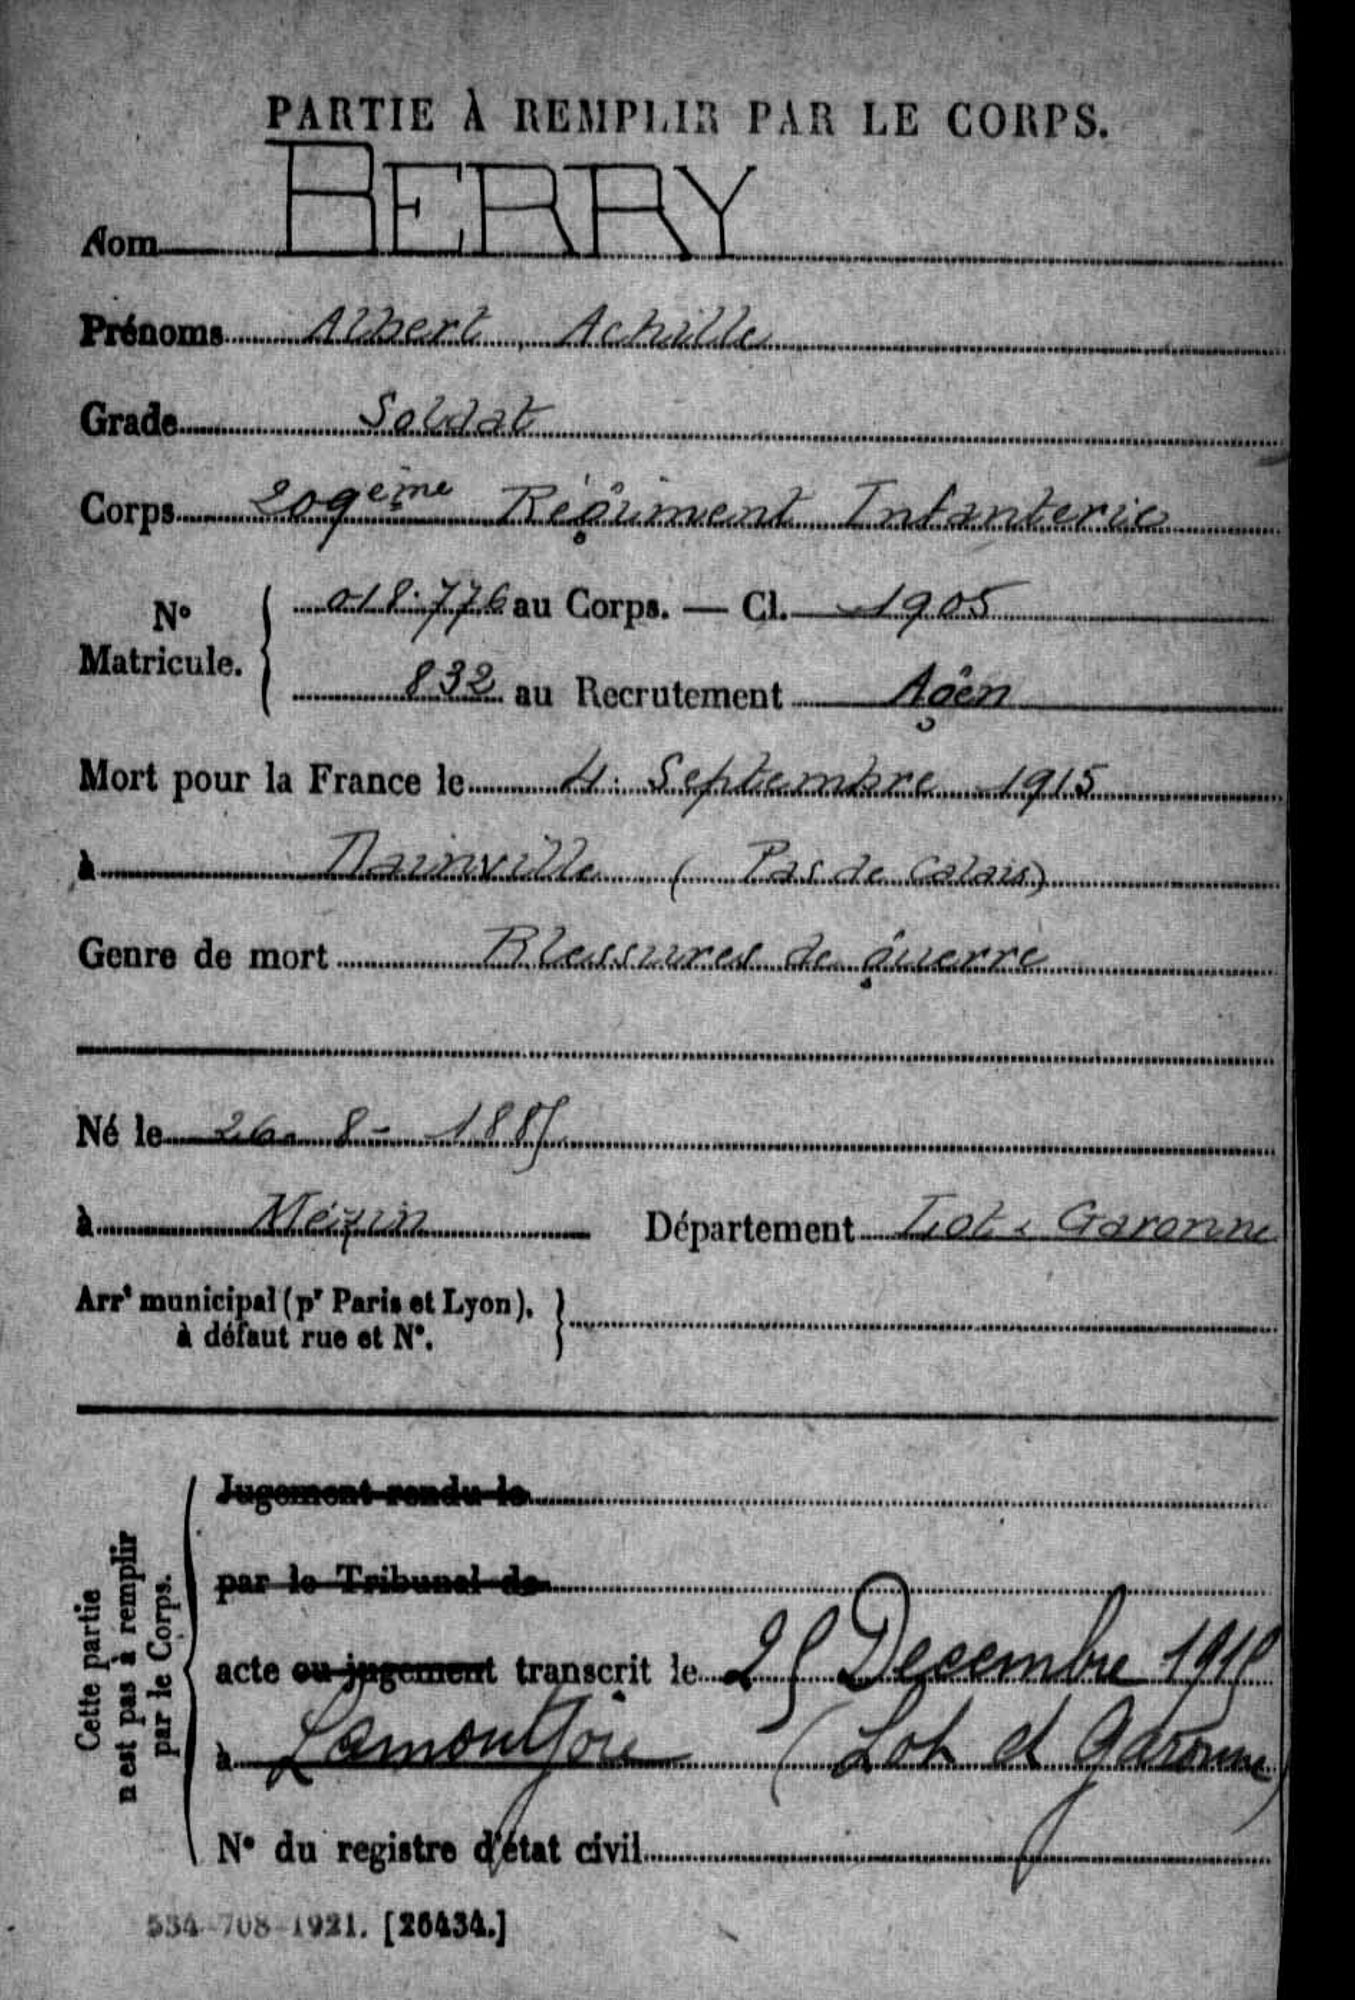 PARTIE À REMPLIR PAR LE CORPS.
Nom BERRY
Prénoms Albert, Achille
Grade Soldat
Corps 209ème Régiment Infanterie
N° Matricule. 018.776 au Corps. — Cl. 1905
832 au Recrutement Agen
Mort pour la France le 4 Septembre 1915
à Dainville (Pas de Calais)
Genre de mort Blessures de guerre
Né le 26. 8- 1885
à Mézin Département Lot & Garonne
Arrt municipal (pr Paris et Lyon),
à défaut rue et N°.
Cette partie
n'est pas à remplir
par le Corps.
Jugement rendu le
par le Tribunal de
acte ou jugement transcrit le 25 Decembre 1915
à Lamontjoie (Lot et Garonne)
N° du registre d'état civil
534-708-1921. [26434.]